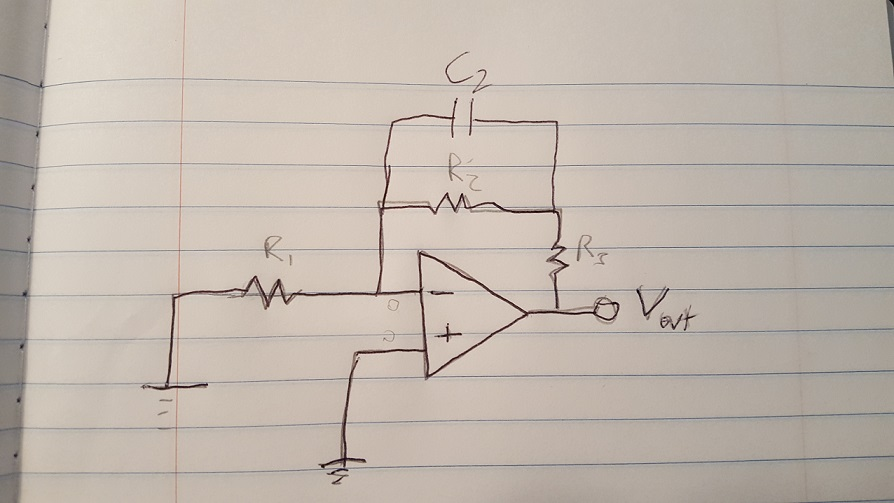 C2
R2
R1
R3
−
+
Vout